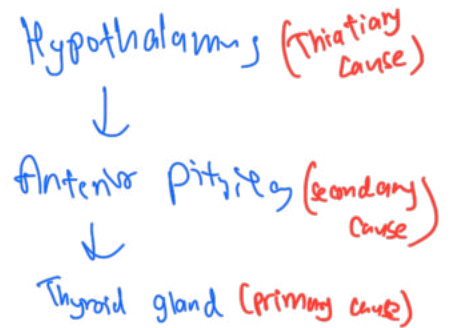 Hypothalamus (Thiatiary cause)
↓
Antenir pitviey (secondary cause)
↓
Thyroid gland (primary cause)